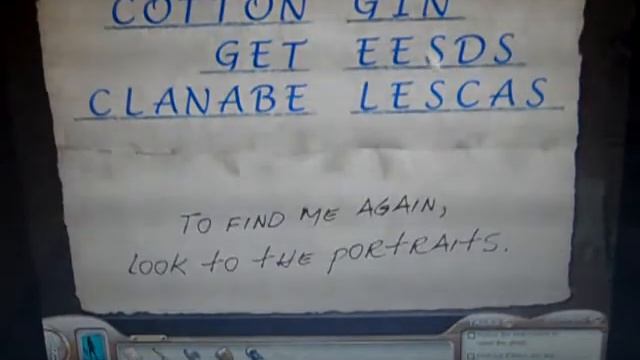 COTTON GIN
GET EESDS
CLANABE LESCAS
TO FIND ME AGAIN,
LOOK TO THE PORTRAITS.